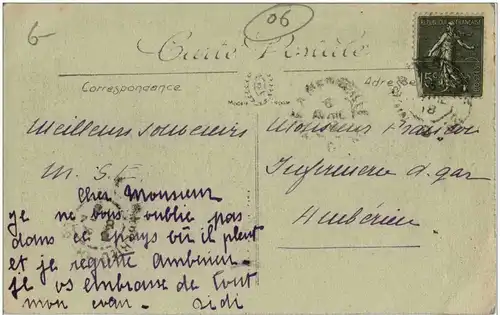 6
06
Carte Postale
Correspondance
RÉPUBLIQUE FRANÇAISE
15c
Meilleurs souvenirs
M. S. E.
Cher Monsieur
je ne vous oublie pas
dans ce pays où il pleut
et je regrette Amberieu.
je vs embrasse de tout
mon cœur. Didi
Monsieur
Infirmerie d. gar
Ambérieu